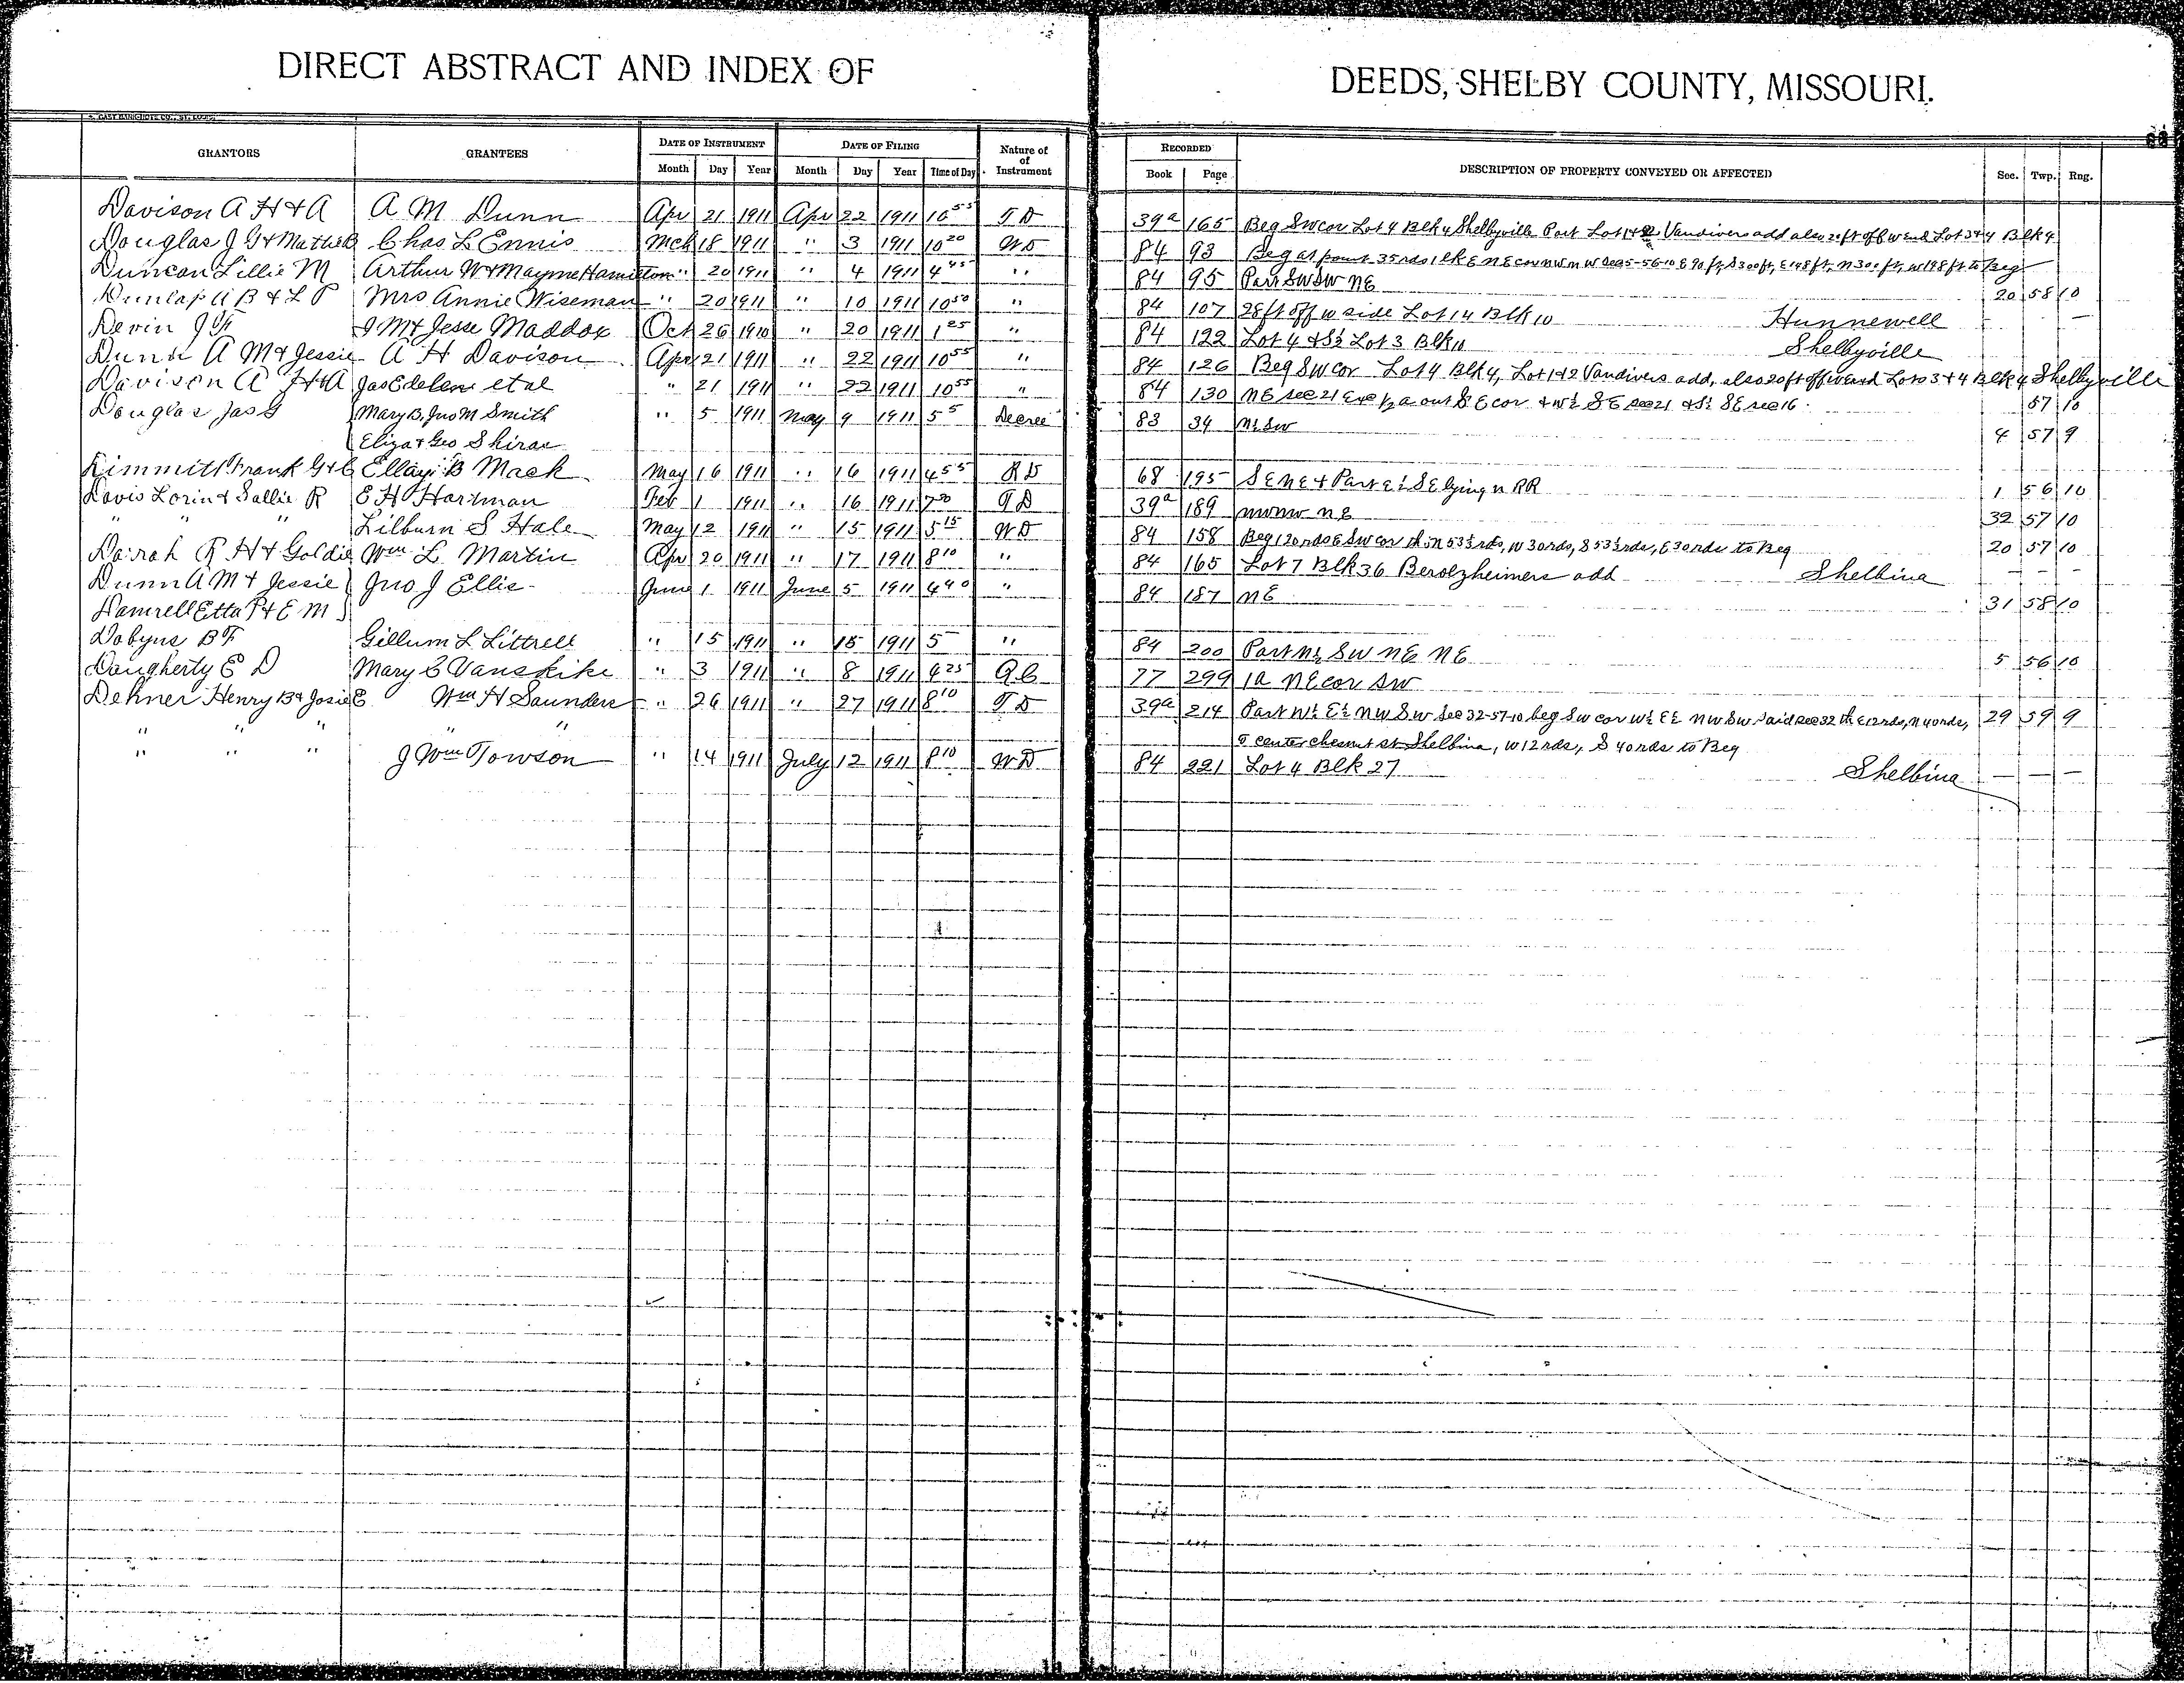 DIRECT ABSTRACT AND INDEX OF DEEDS, SHELBY COUNTY, MISSOURI.
GRANTORS GRANTEES DATE OF INSTRUMENT DATE OF FILING Nature of of Instrument RECORDED DESCRIPTION OF PROPERTY CONVEYED OR AFFECTED Sec. Twp. Rng.
Month Day Year Month Day Year Time of Day Book Page
Davison A H & A A M Dunn Apr 21 1911 Apr 22 1911 10 55 T D 39a 165 Beg SW cor Lot 4 Blk 4 Shelbyville Part Lot 1 & 2 Vandivers add also 20 ft off W end Lot 3 & 4 Blk 4
Douglas J G & Mattie B Chas L Ennis Mch 18 1911 " 3 1911 10 20 W D 84 93 Beg at point 35 rds 1 lk E NE cor NW NW Sec 5-56-10 E 90 ft, S 300 ft, E 148 ft, N 300 ft, W 198 ft to Beg
Duncan Lillie M Arthur W & Mayme Hamilton " 20 1911 " 4 1911 4 45 " 84 95 Part SW SW NE 20 58 10
Dunlap A B & L P Mrs Annie Wiseman " 20 1911 " 10 1911 10 50 " 84 107 28 ft off W side Lot 14 Blk 10 Hunnewell — —
Devin J F J M & Jesse Maddox Oct 26 1910 " 20 1911 1 25 " 84 122 Lot 4 & S½ Lot 3 Blk 11 Shelbyville
Dunn A M & Jessie A H Davison Apr 21 1911 " 22 1911 10 55 " 84 126 Beg SW cor Lot 4 Blk 4, Lot 1 & 2 Vandivers add, also 20 ft off W end Lots 3 & 4 Blk 4 Shelbyville
Davison A H & A Jas Edelen et al " 21 1911 " 22 1911 10 55 " 84 130 NE sec 21 Exc ½ a out SE cor & W½ SE sec 21 & S½ SE sec 16 57 10
Douglas Jas G Mary B, Jno M Smith " 5 1911 May 9 1911 5 5 Decree 83 34 N½ SW 4 57 9
Eliza & Geo Shiras
Dimmitt Frank G & C B Mack May 16 1911 " 16 1911 4 55 R D 68 195 SE NE & Part E½ SE lying n RR 1 56 10
Davis Lorin & Sallie R E H Hartman Feb 1 1911 " 16 1911 7 30 T D 39a 189 NW NW NE 32 57 10
" " " Lilburn S Hale May 12 1911 " 15 1911 5 15 W D 84 158 Beg 120 rds E SW cor th N 53⅓ rds, W 30 rds, S 53⅓ rds, E 30 rds to Beg 20 57 10
Darrah R H & Goldie Wm L Martin Apr 20 1911 " 17 1911 8 10 " 84 165 Lot 7 Blk 36 Berolzheimers add Shelbina — — —
Dunn A M & Jessie Jno J Ellis June 1 1911 June 5 1911 4 40 " 84 187 NE 31 58 10
Damrell Etta P & E M
Dobyns B F Gillum L Littrell " 15 1911 " 15 1911 5 " 84 200 Part N½ SW NE NE 5 56 10
Daugherty E D Mary C Vanskike " 3 1911 " 8 1911 4 25 Q C 77 299 1a NE cor SW
Dehner Henry B & Josie E Wm H Saunders " 26 1911 " 27 1911 8 10 T D 39a 214 Part W½ E½ NW SW Sec 32-57-10 beg SW cor W½ E½ NW SW said sec 32 th E 12 rds, N 40 rds, 29 59 9
" " " " "
to center chesnut st Shelbina, W 12 rds, S 40 rds to Beg
" " " J Wm Towson " 14 1911 July 12 1911 8 10 W D 84 221 Lot 4 Blk 27 Shelbina — — —